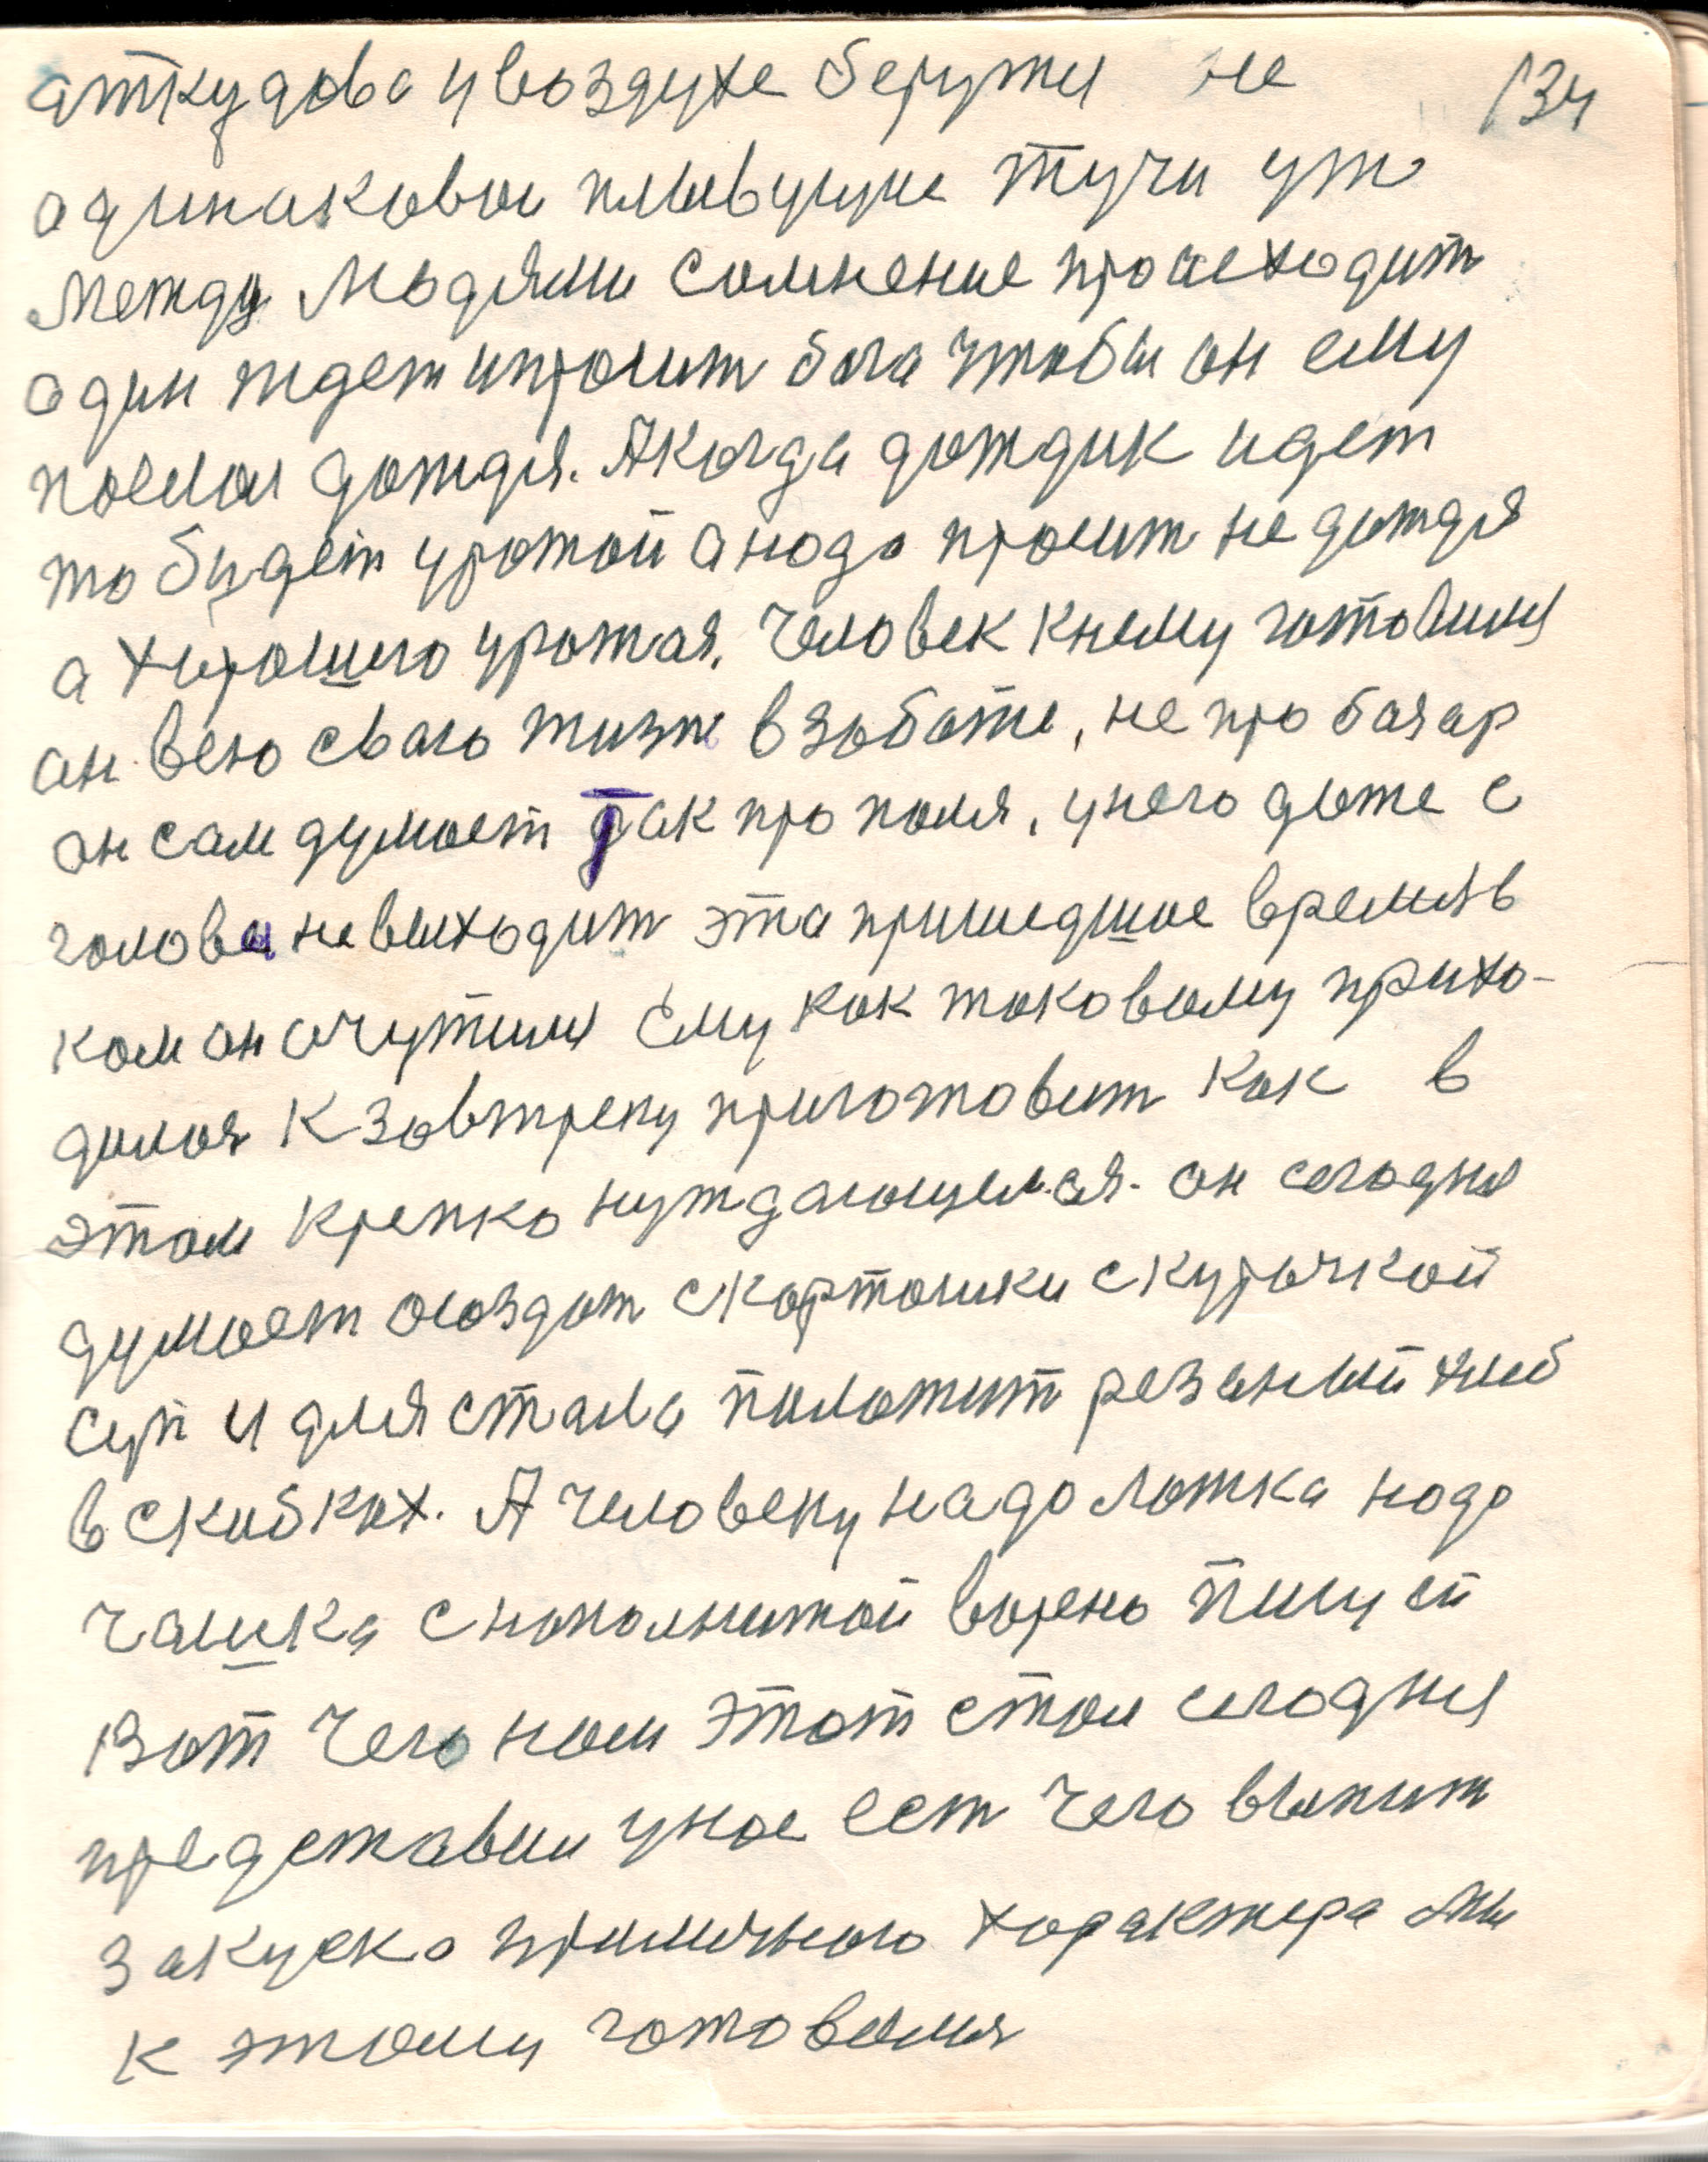 аткудова у воздухе берутся не 134
адинаковаи плывущие тучи ут
между людями сомнение происходит
один ждет и просит бога чтобы он ему
послал дождя. А когда дождик идет
то будет урожай а надо просит не дождя
а хорошего урожая. Человек к нему готовился
он всю сваю жизнь в заботе, не про базар
он сам думает так про поля, у него даже с
головы не выходит эта пришедшее время в
ком он очутился Ему как токовому прихо-
дилося К завтреку приготовит как в
этом крепко нуждающемся. он сегодня
думает создат с картошки с курочкой
суп и для стала положит резаный хлеб
в скибках. А человеку надо ложка надо
чашка с наполнитой варено пищей
Вот чего нам этот стол сегодня
представил у нас ест чего выпит
закуска приличного характера мы
к этому готовился